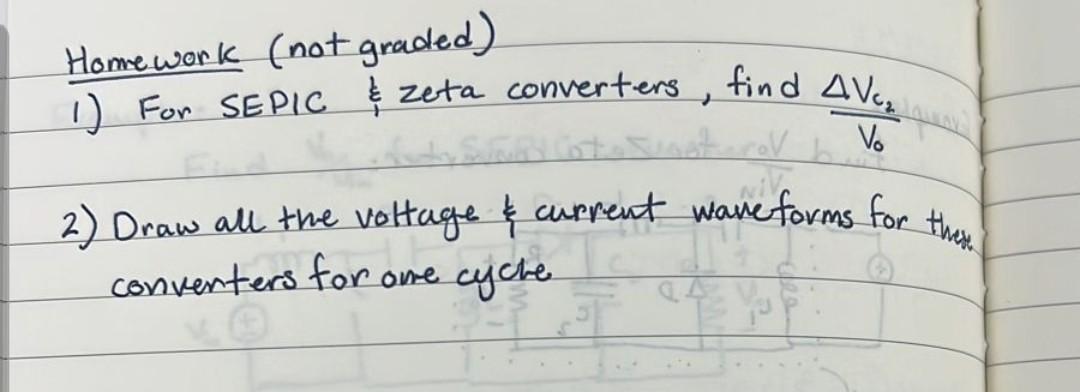 Homework (not graded)
1) For SEPIC & zeta converters, find ΔVc₂/Vo
2) Draw all the voltage & current waveforms for these
converters for one cycle